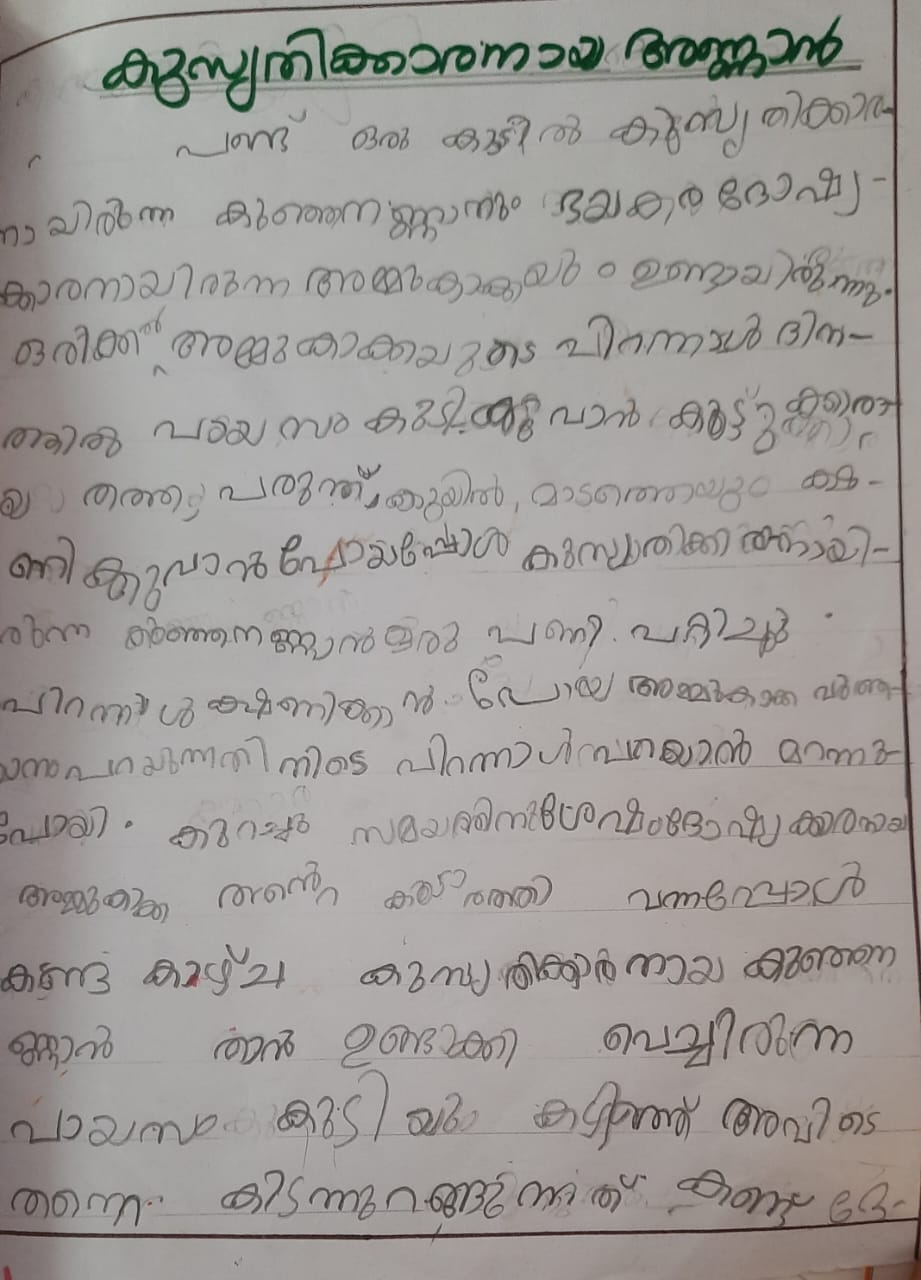 കുസൃതിക്കാരനായ അണ്ണാൻ
പണ്ട് ഒരു കാട്ടിൽ കുസൃതിക്കാര-
നായിരുന്ന കുഞ്ഞനണ്ണാനും ഭയങ്കര ദേഷ്യ-
ക്കാരനായിരുന്ന അമ്മുകാക്കയും ഉണ്ടായിരുന്നു.
ഒരിക്കൽ അമ്മുകാക്കയുടെ പിറന്നാൾ ദിന-
പായസം കുടിക്കുവാൻ
തത്ത, പരുന്ത്, കുയിൽ, മാടത്തയും ക്ഷ-
ണിക്കുവാൻ പോയപ്പോൾ കുസൃതിക്കാരനായി-
രുന്ന കുഞ്ഞനണ്ണാൻ ഒരു പണി പറ്റിച്ചു.
പിറന്നാൾ ക്ഷണിക്കാൻ പോയ അമ്മുകാക്ക
പിറന്നാൾ പറയാൻ മറന്നു
പോയി. കുറച്ചു സമയത്തിനുശേഷം ദേഷ്യക്കാരനായ
അമ്മുകാക്ക തന്റെ വന്നപ്പോൾ
കണ്ട കാഴ്ച കുസൃതിക്കാരനായ കുഞ്ഞന
ണ്ണാൻ താൻ ഉണ്ടാക്കി വെച്ചിരുന്ന
പായസം കുടിയും കഴിഞ്ഞ് അവിടെ
തന്നെ കിടന്നുറങ്ങുന്നത് കണ്ട ദേ-